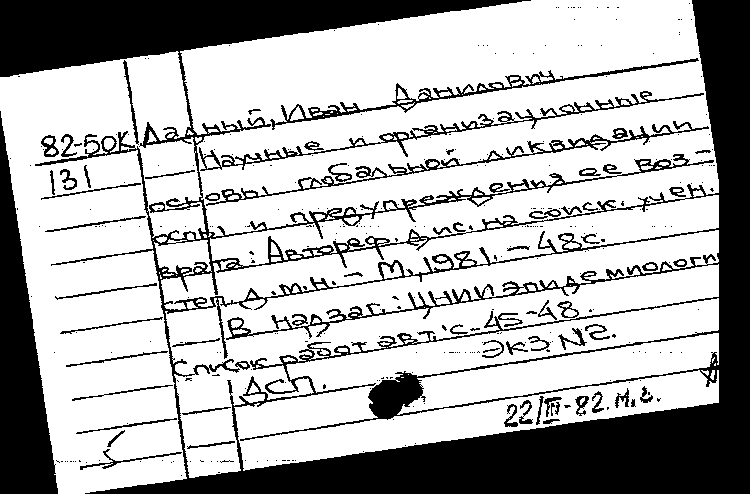 Ладный, Иван Данилович.
82-50К
131
Научные и организационные
основы глобальной ликвидации
оспы и предупреждения ее воз-
врата: Автореф. дис. на соиск. учен.
степ. д.м.н. - М., 1981. - 48с.
В надзаг.: ЦНИИ эпидемиологии
Список работ авт.: с-45-48.
Экз N2.
ДСП.
22/III-82. М.г.